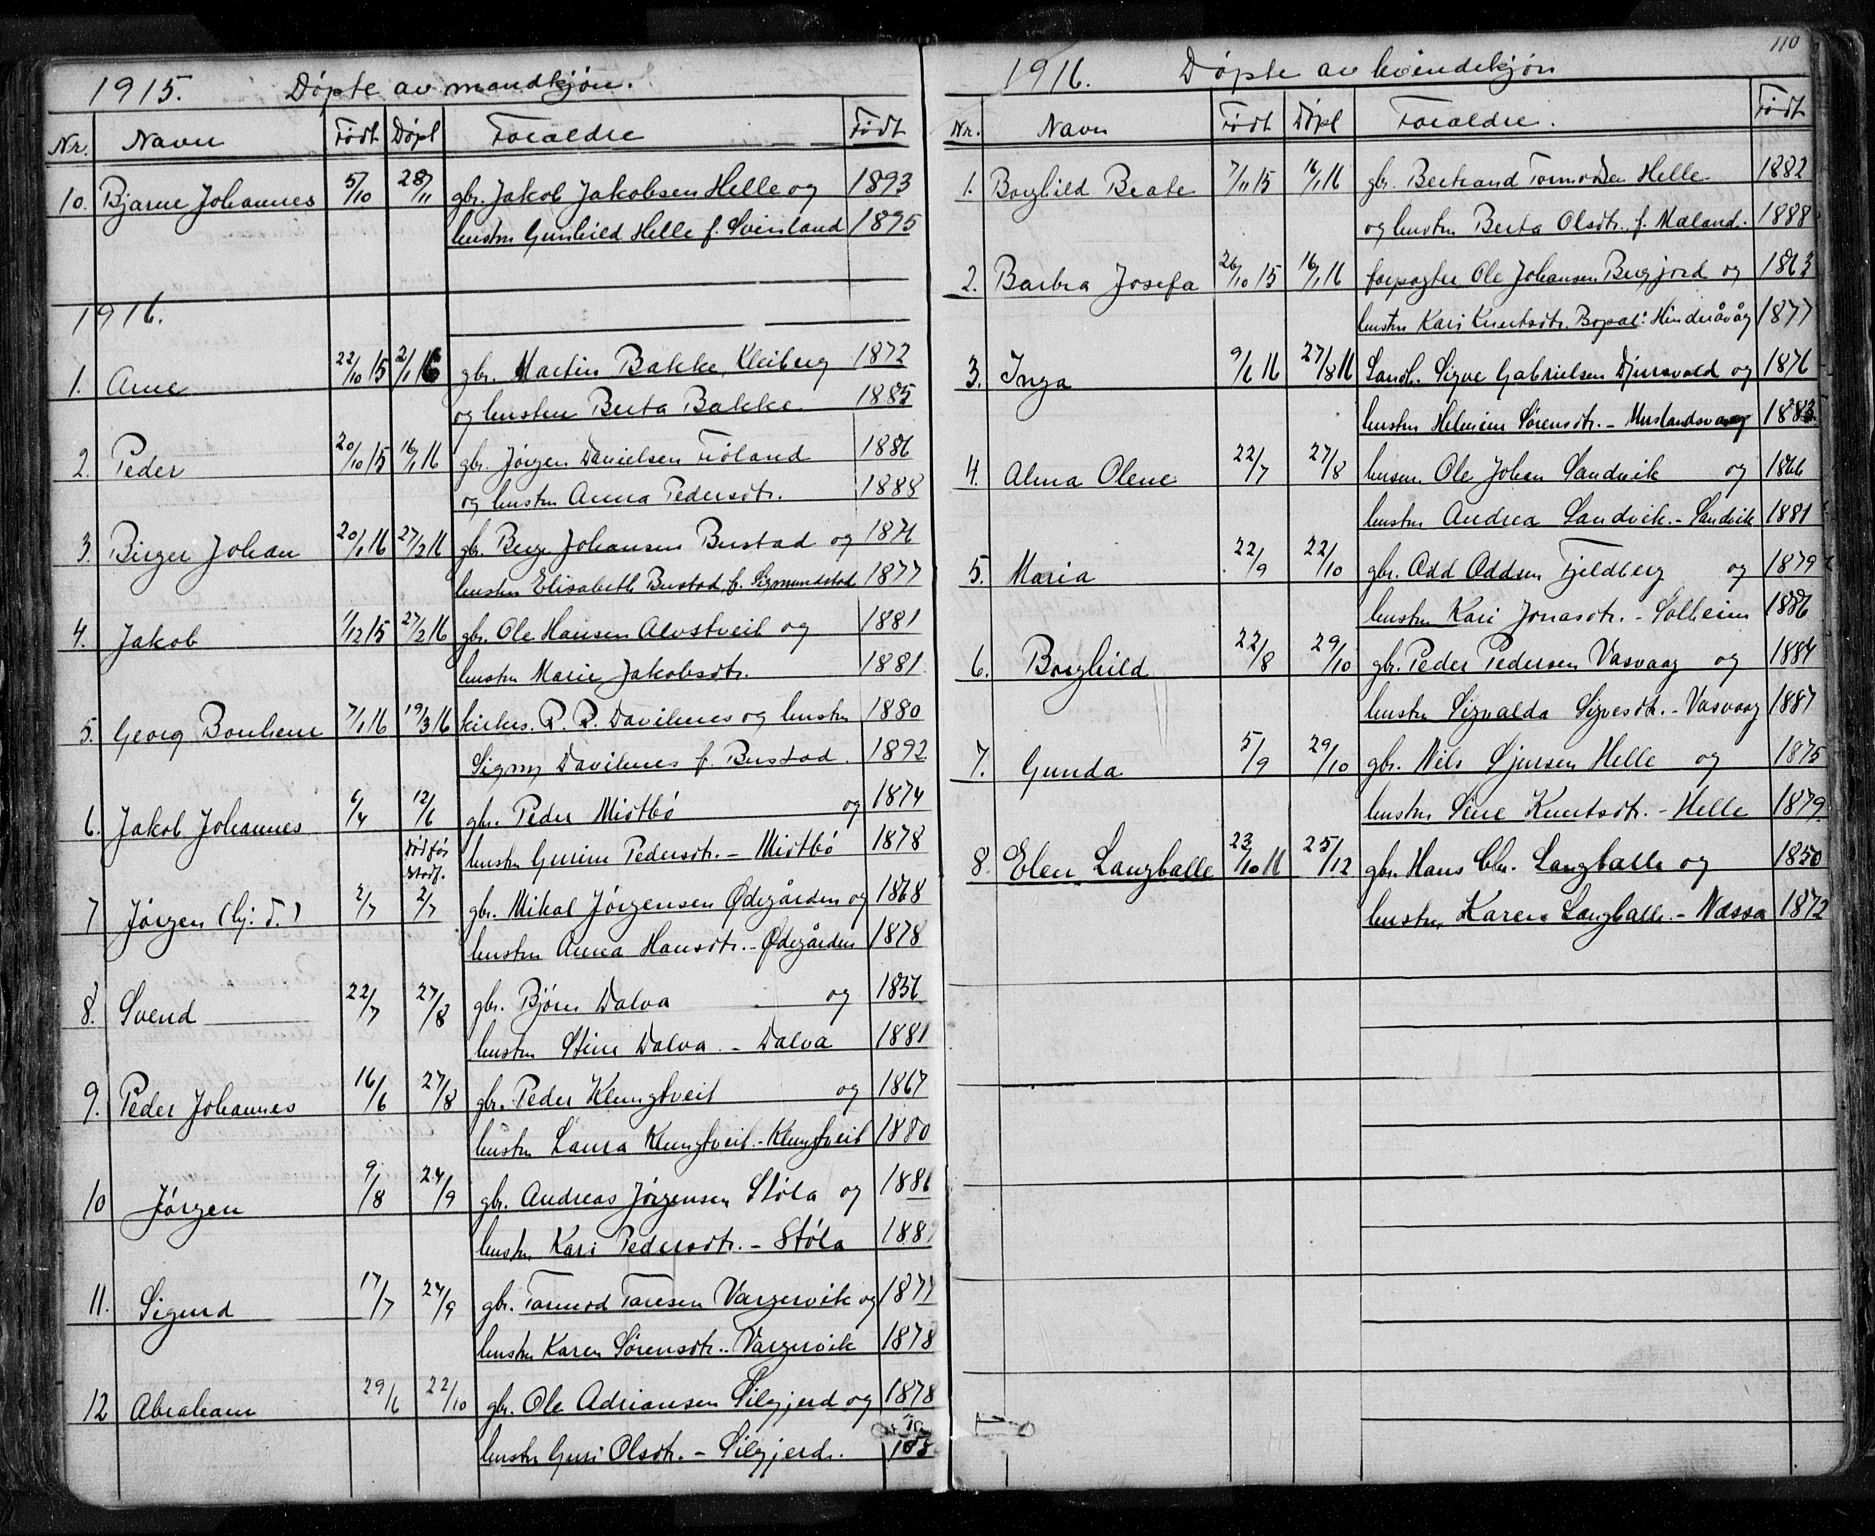 1915. Døpte av mandkjøn.
Nr. Navn Født Døpt Forældre Født
10. Bjarne Johannes 5/10 28/11 gbr. Jakob Jakobsen Helle og 1893
hustru Gunhild Helle f. Svinland 1895
1916.
1. Arne 22/10 15 2/1 16 gbr. Martin Bakke, Kleiberg 1872
og hustru Berta Bakke 1885
2. Peder 20/10 15 16/1 16 gbr. Jørgen Danielsen Tioland 1886
og hustru Anna Pedersdtr. 1888
3. Birger Johan 20/1 16 27/2 16 gbr. Berge Johansen Bustad og 1871
hustru Elisabeth Bustad f. Sigmundstad 1877
4. Jakob 1/12 15 27/2 16 gbr. Ole Hansen Alvstveit og 1881
hustru Marie Jakobsdtr. 1881
5. Georg Bonhem 7/1 16 19/3 16 kirkes. R. R. Davilnes og hustru 1880
Signy Davilnes f. Bustad. 1892
6. Jakob Johannes 6/4 12/6 gbr. Peder Midtbø og 1874
hustru Gurine Pedersdtr. – Midtbø 1878
død før
stadf.
7 Jørgen (hj: d.) 2/7 2/7 gbr. Mikal Jørgensen Ødegården og 1868
hustru Anna Hansdtr. – Ødegården 1878
8. Svend 22/7 27/8 gbr. Bjørn Dalva og 1856
hustru Stine Dalva. – Dalva 1881
9. Peder Johannes 16/6 27/8 gbr. Peder Klungtveit og 1867
hustru Laura Klungtveit. – Klungtveit 1880
10 Jørgen 9/8 24/9 gbr. Andreas Jørgensen Støla og 1886
hustru Kari Pedersdtr. – Støla 1881
11. Sigurd 17/7 24/9 gbr. Tormod Taresen Vargervik og 1871
hustru Karen Sørensdtr. – Vargervik 1878
12 Abraham 29/6 22/10 gbr. Ole Adriansen Silgjerd og 1878
hustru Guri Olsdtr. – Silgjerd.
110
1916. Døpte av kvindekjøn
Nr. Navn Født Døpt Forældre. Født
1. Borghild Beate 7/11 15 16/1 16 gbr. Bertrand Tormodsen Helle 1882
og hustru Berta Olsdtr. f. Mæland. 1888
2. Barbra Josefa 26/10 15 16/1 16 forpagter Ole Johansen Bergjord og 1863
hustru Kari Knutsdtr. Bopæl: Hinderåvåg 1877
3. Inga 9/6 16 27/8 16 Landh. Sigve Gabrielsen Djursvold og 1876
hustru Helmine Sørensdtr. – 1883
4. Alma Olene 22/7 27/8 husm. Ole Johan Sandvik og 1866
hustru Andrea Sandvik. – Sandvik 1881
5. Maria 22/9 22/10 gbr. Odd Oddsen Fjeldberg og 1879
hustru Kari Jonasdtr. – Solheim 1886
6. Borghild 22/8 29/10 gbr. Peder Pedersen Vasvaag og 1884
hustru Sigvalda Sigvesdtr. – Vasvaag 1887
7. Gunda 5/9 29/10 gbr. Nils Sjursen Helle og 1875
hustru Sine Knutsdtr. – Helle 1879
8. Elen Langballe 23/10 16 25/12 gbr. Hans Chr. Langballe og 1850
hustru Karen Langballe. – Næssa 1872